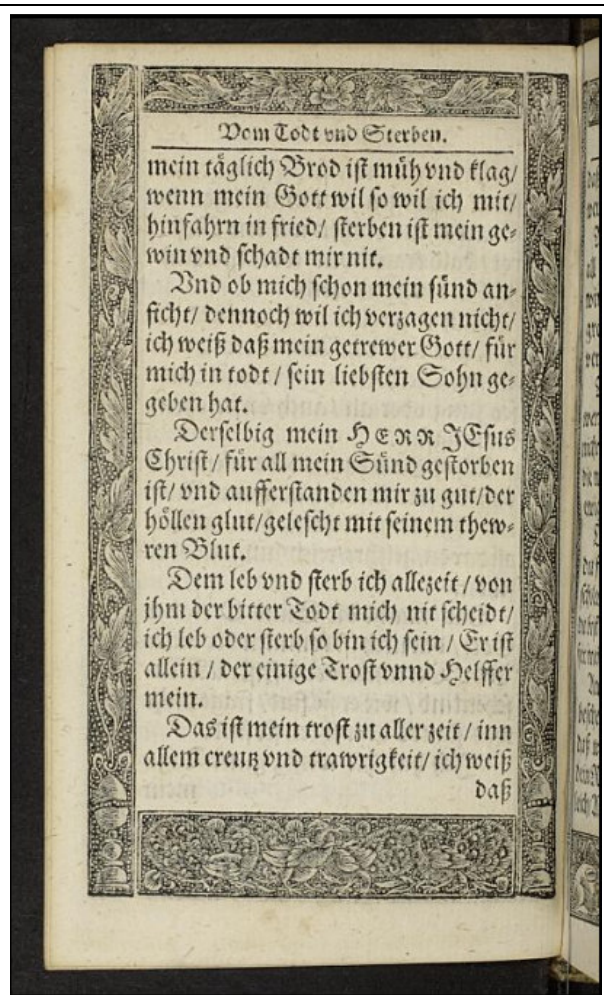 Vom Todt vnd Sterben.
mein täglich Brod ist müh vnd klag/
wenn mein Gott wil so wil ich mit/
hinfahrn in fried/ sterben ist mein ge-
win vnd schadt mir nit.
Vnd ob mich schon mein sünd an-
ficht/ dennoch wil ich verzagen nicht/
ich weiß daß mein getrewer Gott/ für
mich in todt / sein liebsten Sohn ge-
geben hat.
Derselbig mein HERR JEsus
Christ / für all mein Sünd gestorben
ist/ vnd aufferstanden mir zu gut/der
höllen glut/gelescht mit seinem thew-
ren Blut.
Dem leb vnd sterb ich allezeit / von
jhm der bitter Todt mich nit scheidt/
ich leb oder sterb so bin ich sein / Er ist
allein / der einige Trost vnnd Helffer
mein.
Das ist mein trost zu aller zeit / inn
allem creutz vnd trawrigkeit/ ich weiß
daß